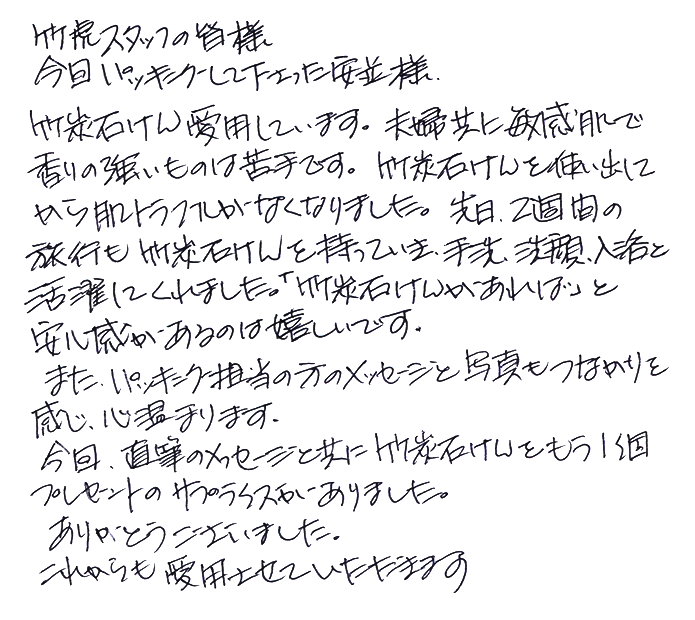 竹虎スタッフの皆様
今回パッキングして下さった安並様
竹炭石けん愛用しています。夫婦共に敏感肌で
香りの強いものは苦手です。竹炭石けんを使い出して
から肌トラブルがなくなりました。先日、2週間の
旅行も竹炭石けんを持っていき、手洗、洗顔、入浴と
活躍してくれました。「竹炭石けんがあれば」と
安心感があるのは嬉しいです。
また、パッキング担当の方のメッセージと写真もつながりを
感じ、心温まります。
今回、直筆のメッセージと共に竹炭石けんをもう1個
プレゼントのサプライズがありました。
ありがとうございました。
これからも愛用させていただきます